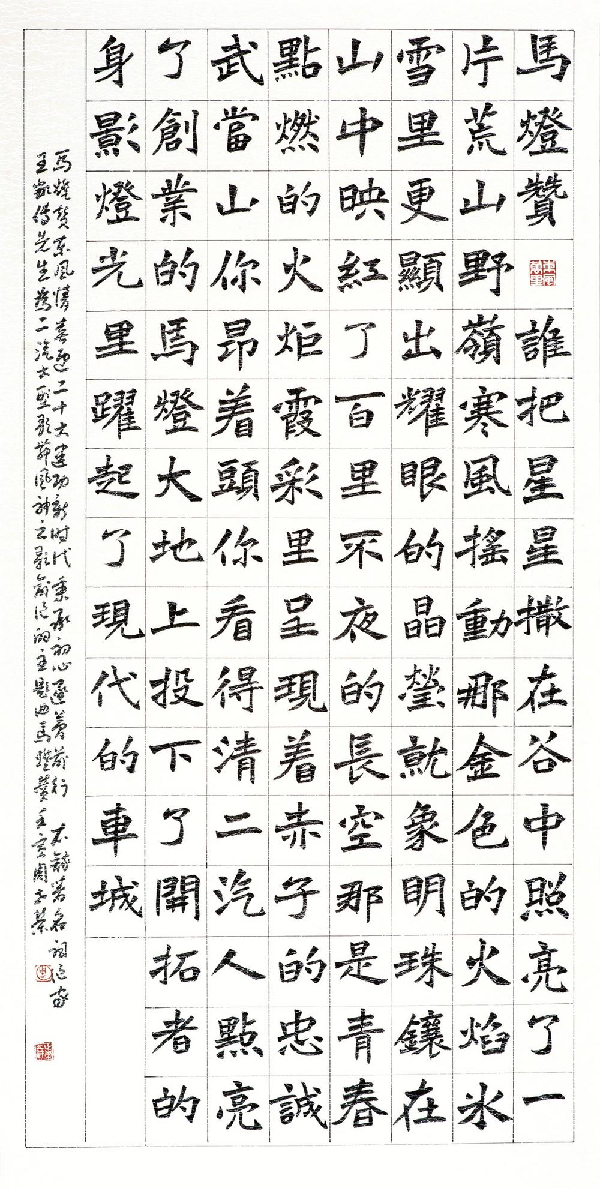 馬燈贊 誰把星星撒在谷中照亮了一
片荒山野嶺寒風搖動那金色的火焰冰
雪里更顯出耀眼的晶瑩就象明珠鑲在
山中映紅了百里不夜的長空那是青春
點燃的火炬霞彩里呈現着赤子的忠誠
武當山你昂着頭你看得清二汽人點亮
了創業的馬燈大地上投下了開拓者的
身影燈光里躍起了現代的車城
馬燈贊东風情喜迎二十大建功新时代秉承初心逐夢前行 著名詞作家
先生為二汽大型歌舞風神之歌創作的主題曲馬燈贊 壬寅周